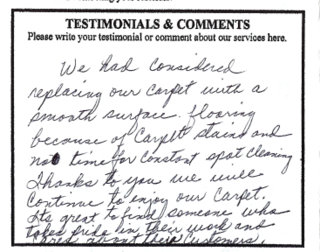 TESTIMONIALS & COMMENTS
Please write your testimonial or comment about our services here.
We had considered
replacing our carpet with a
smooth surface flooring
because of carpet stains and
not time for constant spot cleaning
Thanks to you we will
continue to enjoy our carpet.
Its great to find someone who
takes pride in their work and
cares about their customers